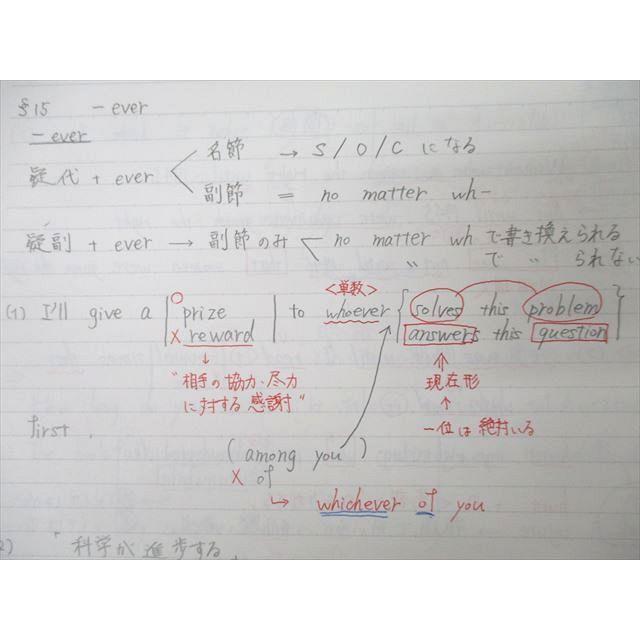 §15 -ever
-ever
疑代 + ever
名節 → S / O / C になる
副節 = no matter wh-
疑副 + ever → 副節のみ
no matter wh で書き換えられる
〃 で 〃 られない
<単数>
(1) I'll give a ○ prize to whoever { solves this problem }
× reward { answers this question }
↓
"相手の協力・尽力
に対する感謝"
⇑
現在形
↑
一位は絶対いる
first.
(among you)
× of
↳ whichever of you
2) 科学が進歩する